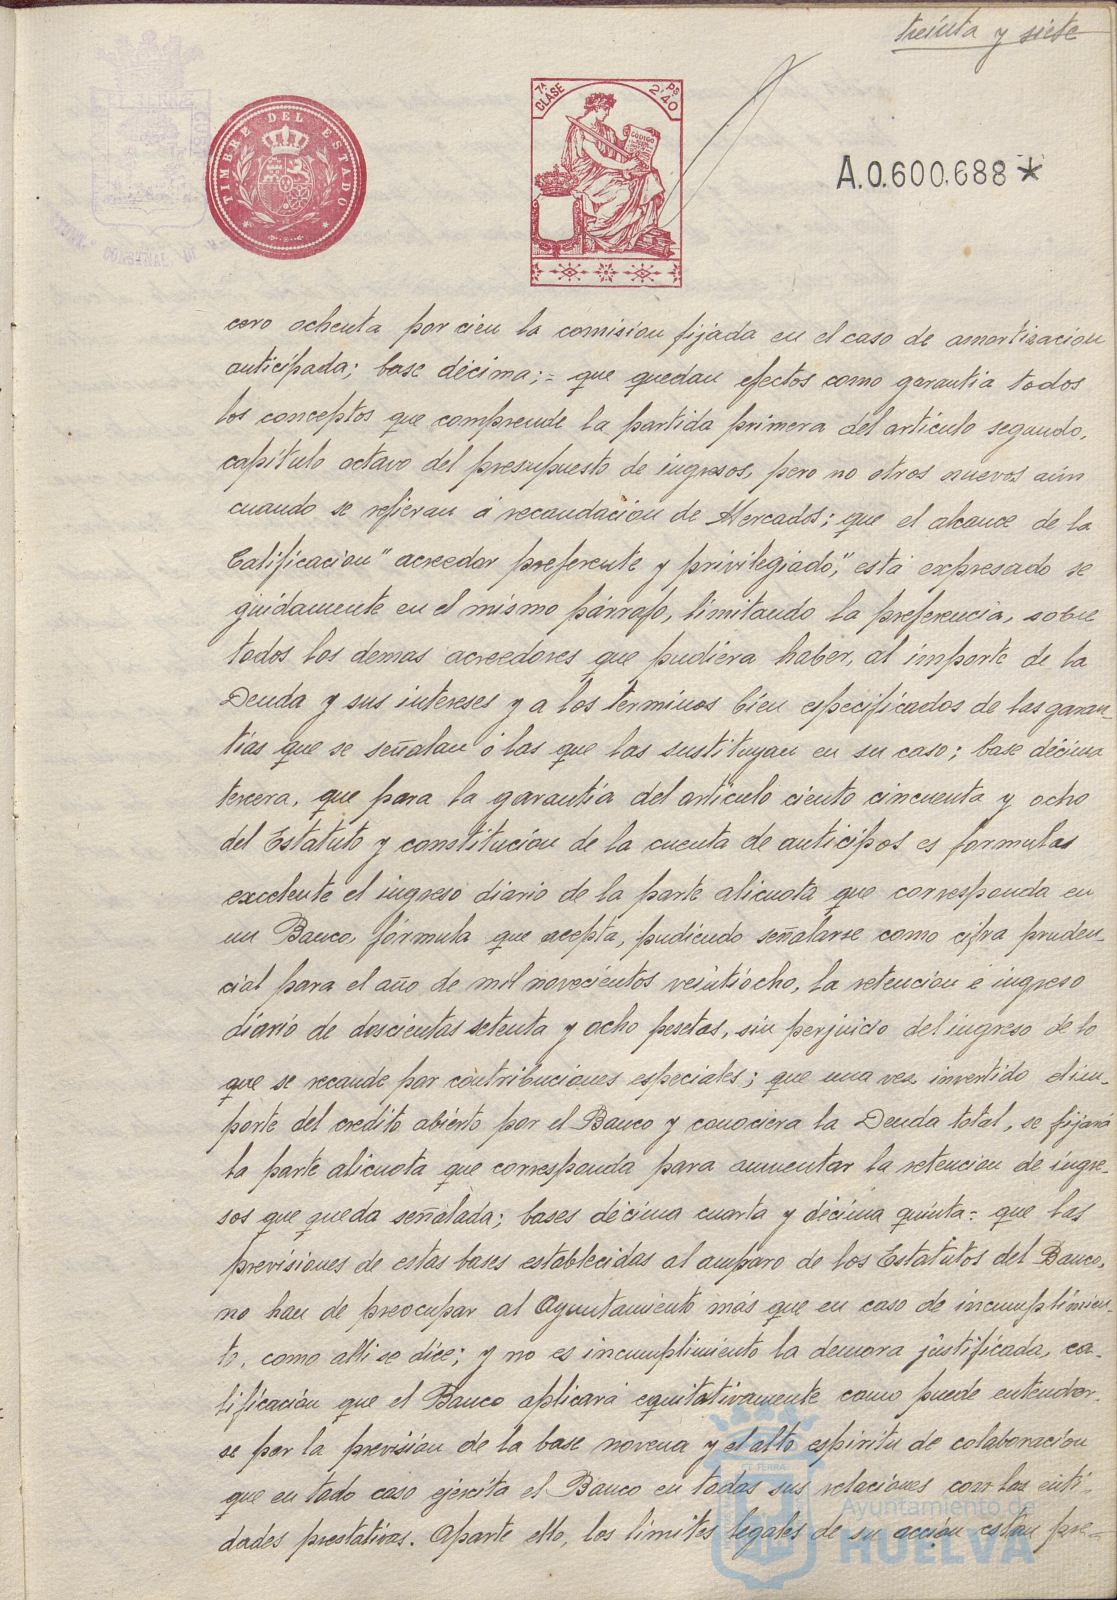 treinta y siete
TIMBRE DEL ESTADO
7ª CLASE
Ps 2'40
CODIGO
A.0.600.688*
cero ochenta por cien la comision fijada en el caso de amortizacion
anticipada; base décima;= que quedan efectos como garantia todos
los conceptos que comprende la partida primera del articulo segundo,
capitulo octavo del presupuesto de ingresos, pero no otros nuevos aún
cuando se refieran á recaudacion de Mercados; que el alcance de la
Calificacion "acreedor preferente y privilegiado", está expresado se
guidamente en el mismo párrafo, limitando la preferencia, sobre
todos los demas acreedores que pudiera haber, al importe de la
Deuda y sus intereses y a los terminos bien especificados de las garan-
tías que se señalan ó las que las sustituyan en su caso; base décima
tercera, que para la garantía del artículo ciento cincuenta y ocho
del Estatuto y constitución de la cuenta de anticipos es formulas
excelente el ingreso diario de la parte alicuota que corresponda en
un Banco, fórmula que acepta, pudiendo señalarse como cifra pruden-
cial para el año de mil novecientos veintiocho, la retencion e ingreso
diario de doscientas setenta y ocho pesetas, sin perjuicio del ingreso de lo
que se recaude por contribuciones especiales; que una vez invertido el im-
porte del credito abierto por el Banco y conociera la Deuda total, se fijará
la parte alicuota que corresponda para aumentar la retencion de ingre-
sos que queda señalada; bases décima cuarta y décima quinta= que las
previsiones de estas bases establecidas al amparo de los Estatutos del Banco,
no han de preocupar al Ayuntamiento más que en caso de incumplimien-
to, como alli se dice; y no es incumplimiento la demora justificada, ca-
lificación que el Banco aplicará equitativamente como puede entender-
se por la previsión de la base novena y el alto espiritu de colaboración
que en todo caso ejercita el Banco en todas sus relaciones con las enti-
dades prestativas. Aparte ello, los limites legales de su acción estan pre-
Ayuntamiento de
HUELVA